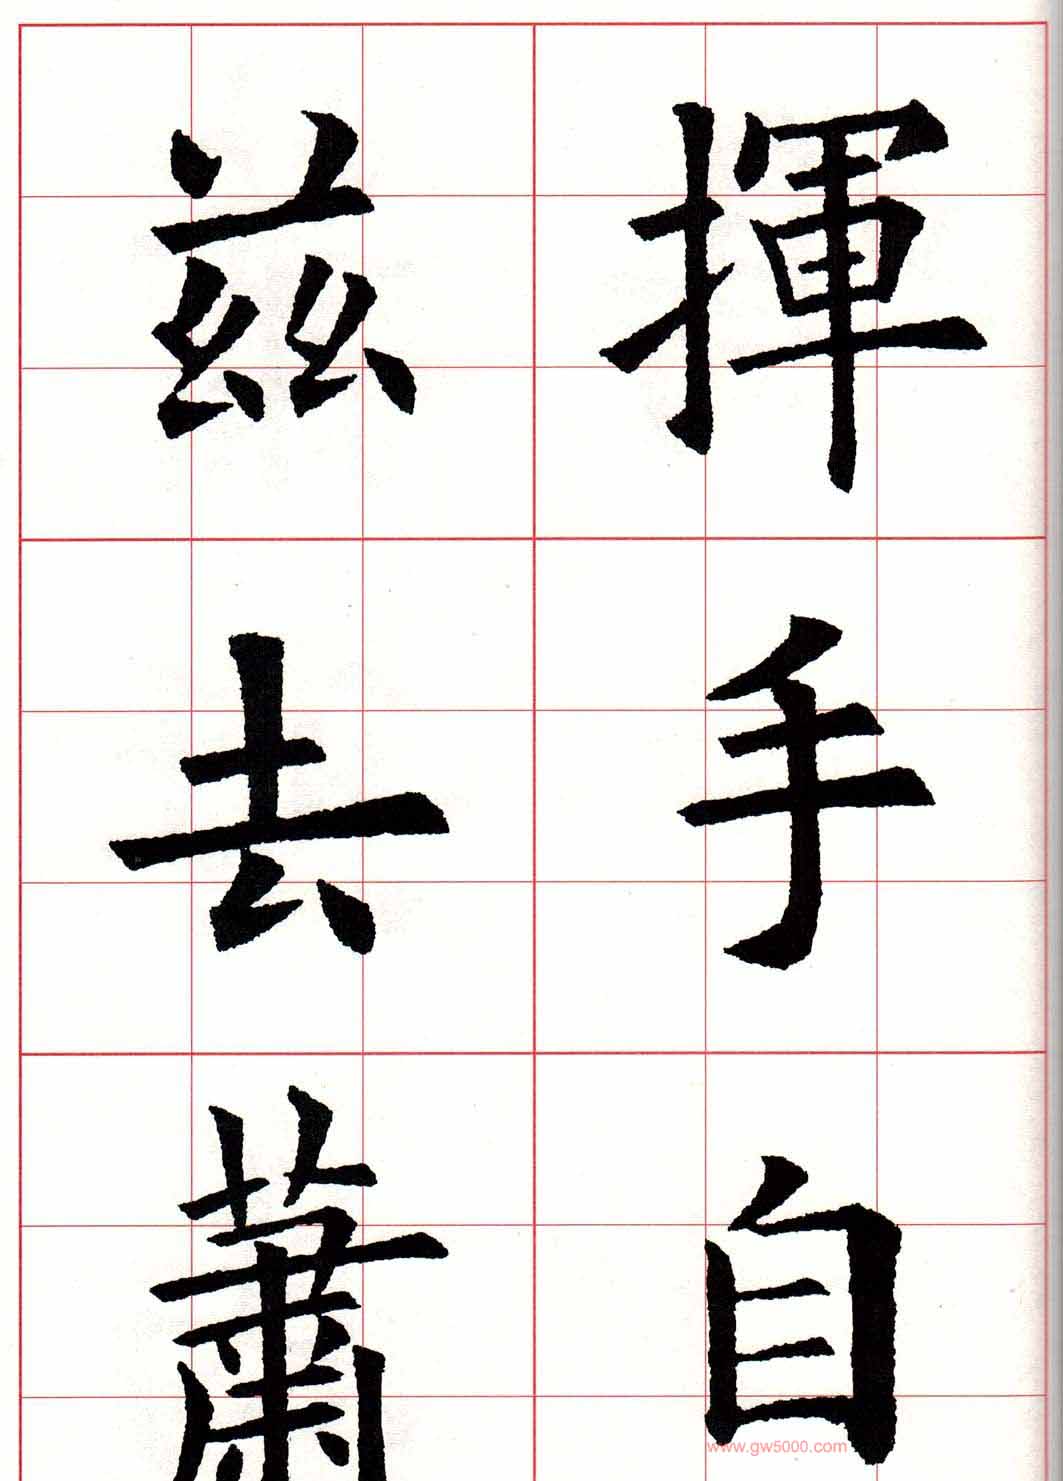 揮手自
茲去蕭
www.gw5000.com